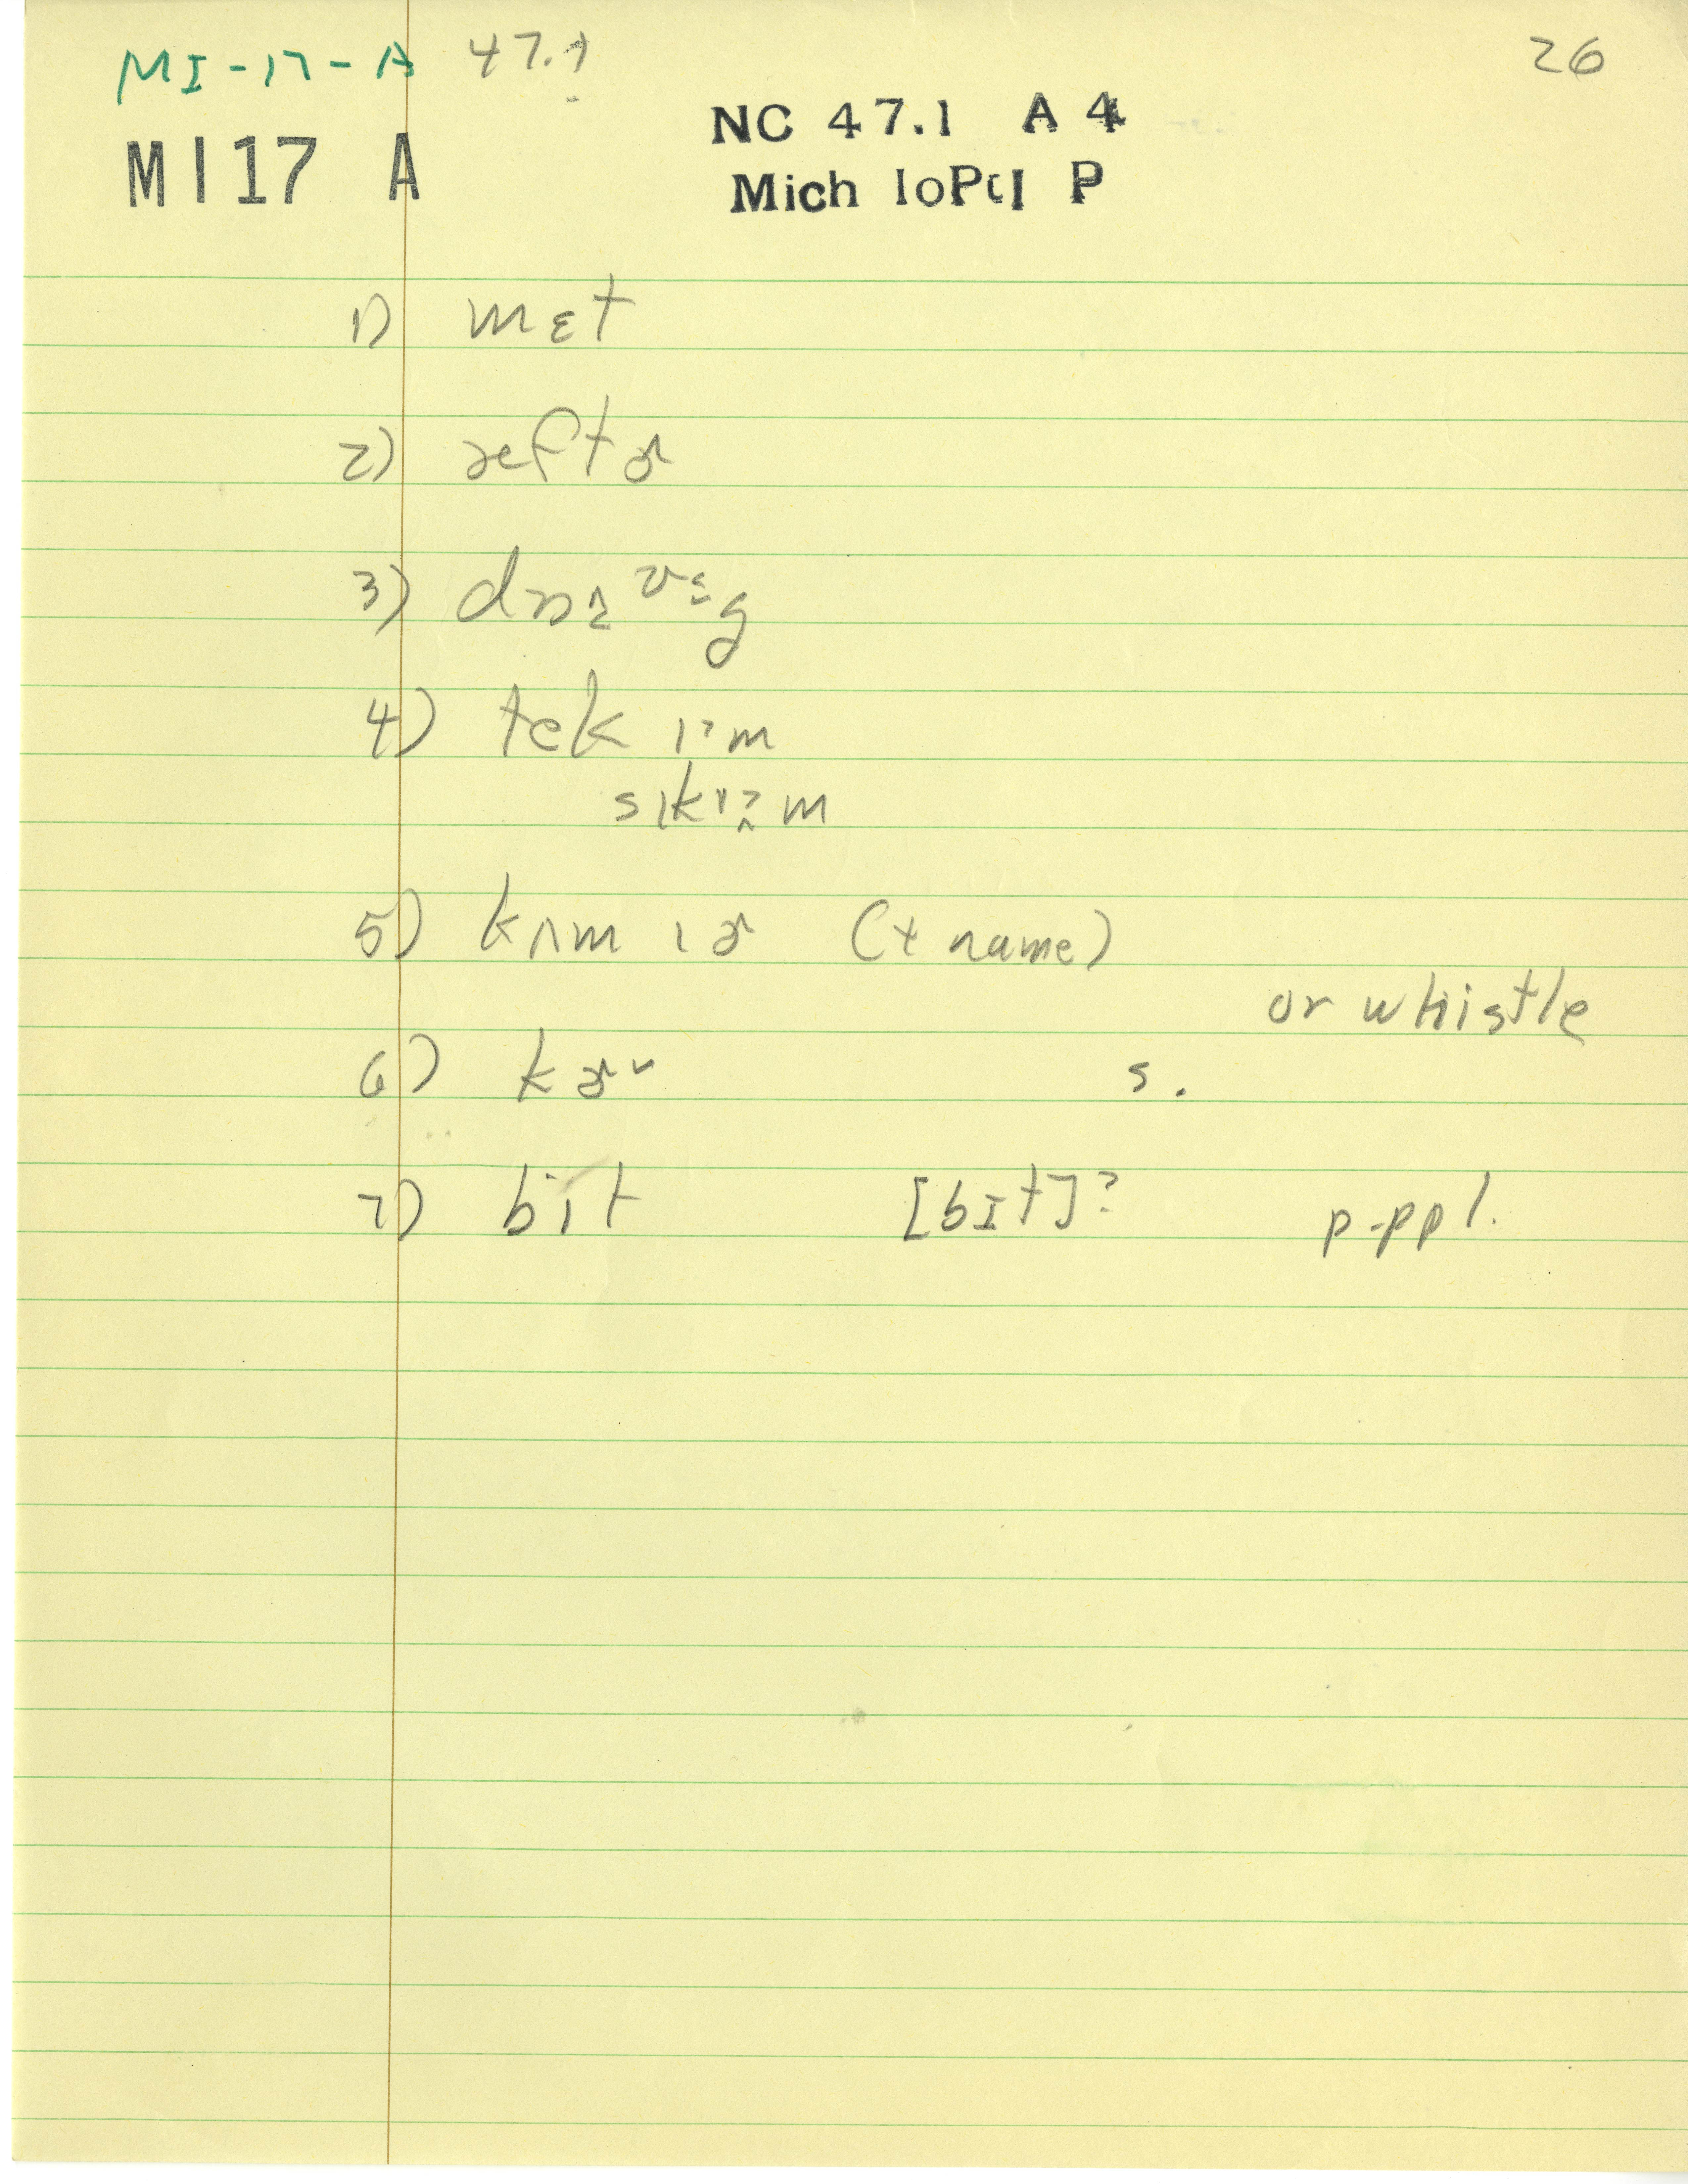 MI-17-A 47.1 26
NC 47.1 A 4
MI17 A
Mich IoPtl P
1) mɛt
2) æftɚ
3)
4) tek
5) kʌm ɪɚ (+ name)
or whistle
6) kɚ s.
7) bit [bɪt]? p.ppl.